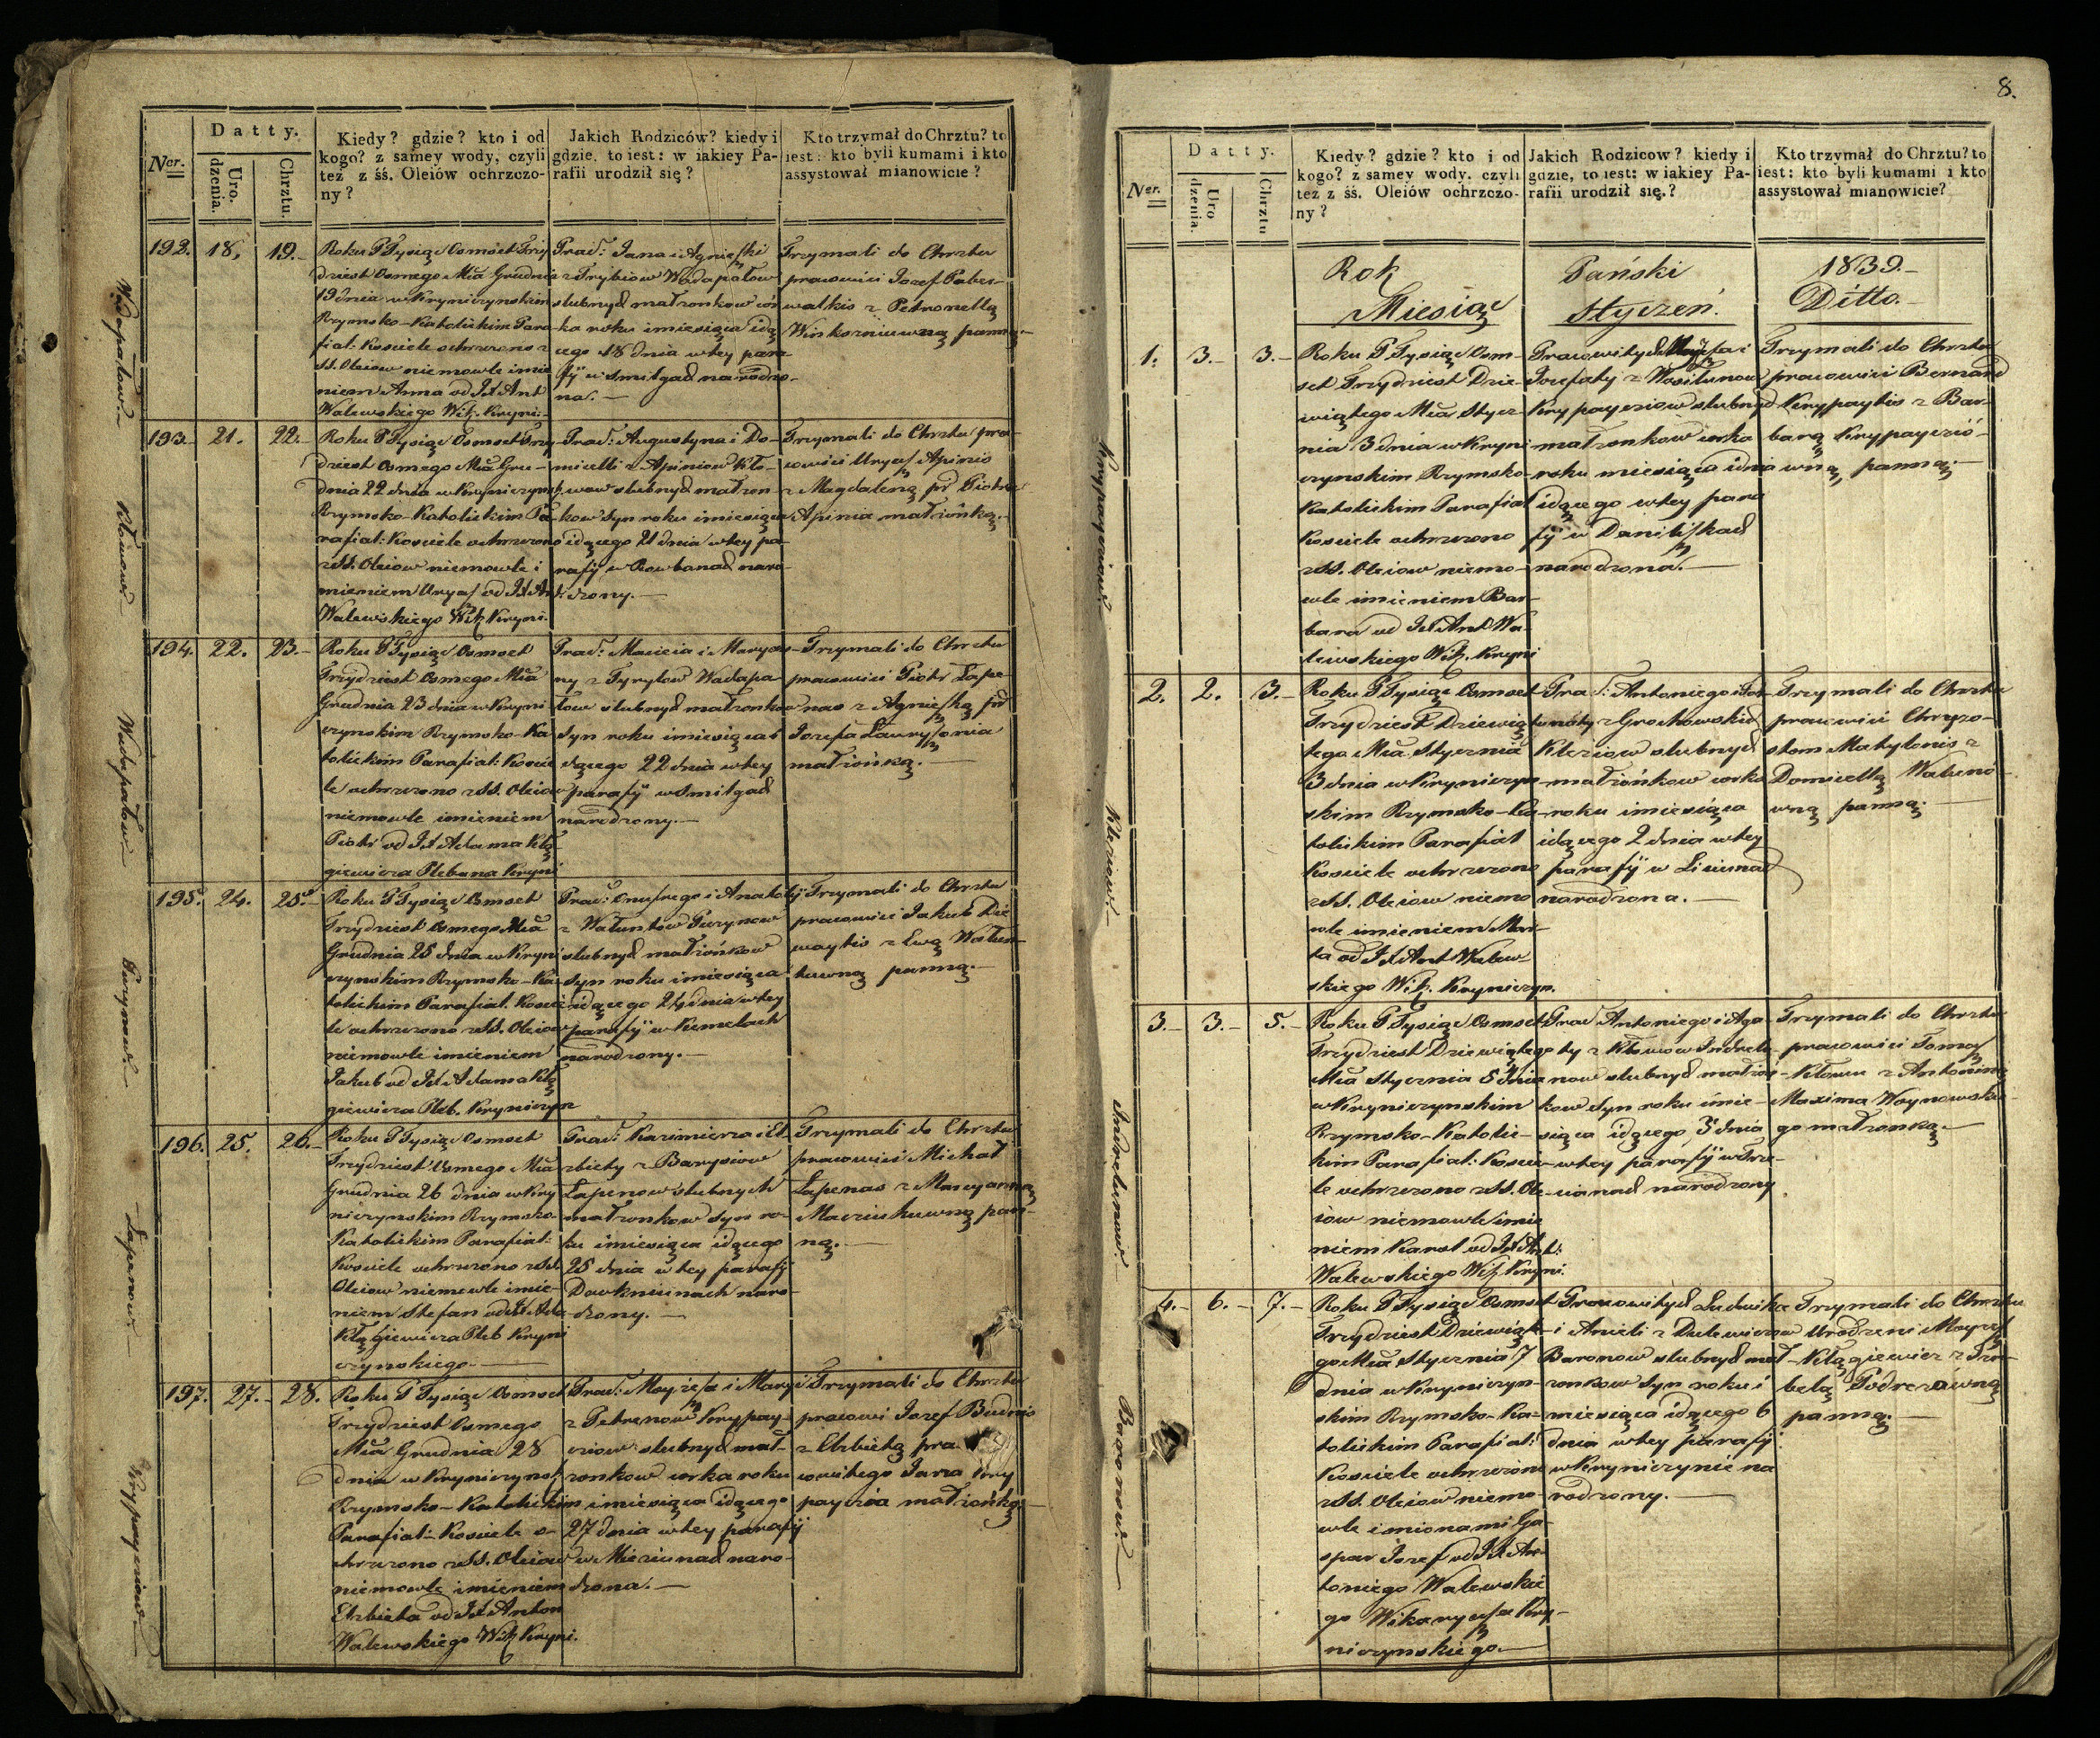 Datty.
Ner.
Uro.
dzenia.
Chrztu.
Kiedy? gdzie? kto i od
kogo? z samey wody, czyli
też z śś. Oleiów ochrzczo-
ny?
Jakich Rodziców? kiedy i
gdzie, to iest: w iakiey Pa-
rafii urodził się?
Kto trzymał do Chrztu? to
iest: kto byli kumami i kto
assystował mianowicie?
192. 18. 19.
Roku P Tysiąc Osmset Trzy
dziest Osmego Mca Grudnia
19 dnia w Kryniczynskim
Rzymsko-Katolickim Para-
fial: Kosciele ochrzczono z
SS. Oleiow niemowle imie
niem Anna od JX Ant
Walewskiego Wik. Kryni:
Prac: Jana i Agnieszki
z Trybiow Wadapałow
slubnych małżonkow cór
ka roku i miesiąca idą
cego 18 dnia w tey para
fij w Smilgach narodzo-
na.
Trzymali do Chrztu
pracowici Jozef Paber-
walkis z Petronellą
panną.
193. 21. 22.
Roku P Tysiąc Osmset Trzy
dziest Osmego Mca Gru-
dnia 22 dnia w Krynieczyns
Rzymsko-Katolickim Pa-
rafial: Kosciele ochrzczono
z SS. Oleiow niemowle i
mieniem Uryasz od JX Ant
Walewskiego Wik Kryni.
Prac: Augustyna i Do-
micelli z Apiniow Kło-
wow slubnych małżon-
kow Syn roku i miesiąca
idącego 21 dnia w tey pa-
rafij w Rowbanach naro-
dzony.
Trzymali do Chrztu pra-
cowici Uryasz Apinis
z Magdaleną pr Piotra
Apinia małżonką.
194. 22. 23.
Roku P Tysiąc Osmset
Trzydziest Osmego Mca
Grudnia 23 dnia w Kryni
czynskim Rzymsko-Ka
tolickim Parafial: Kosci
le ochrzczono z SS. Oleiow
niemowle imieniem
Piotr od JX Adama Kłą
giewicza Plebana Kryni
Prac: Macieia i Maryan
ny z Tyrylow Wadapa-
łow slubnych małżonkow
Syn roku i miesiąca i
dącego 22 dnia w tey
parafij w Smilgach
narodzony.
Trzymali do Chrztu
pracowici Piotr Łape-
nas z Agnieszką pr
Jozefa Ławryszonia
małżonką.
195. 24. 25.
Roku P Tysiąc Osmset
Trzydziest Osmego Mca
Grudnia 25 dnia w Kryni
czynskim Rzymsko-Ka-
tolickim Parafial. Kosci-
le ochrzczono z SS. Oleiow
niemowle imieniem
Jakub od JX Adama Kłą
giewicza Pleb. Kryniczyn
Prac: Onufrego i Anatolij
z Wałuntow Purynow
slubnych małżonkow
Syn roku i miesiąca
idącego 24 dnia w tey
parafij w Kumelach
narodzony.
Trzymali do Chrztu
pracowici Jakub Die
waytis z Ewą Wałun-
tuwną panną.
196. 25. 26.
Roku P Tysiąc Osmset
Trzydziest Osmego Mca
Grudnia 26 dnia w Kry
niczynskim Rzymsko-
Katolickim Parafial:
Kosciele ochrzczono z SS.
Oleiow niemowle imie-
niem Stefan od JX Ada
Kłągiewicza Pleb Kryni
czynskiego.
Prac: Kazimierza i El
zbiety z Barysiow
Łapenow slubnych
małżonkow Syn ro-
ku i miesiąca idącego
25 dnia w tey parafij
Dowkniunach naro-
dzony.
Trzymali do Chrztu
pracowici Michał
Łapenas z Maryanną
pan-
ną.
197. 27. 28.
Roku P Tysiąc Osmset
Trzydziest Osmego
Mca Grudnia 28
dnia w Krynieczyns
Rzymsko-Katolickim
Parafial: Kosciele o-
chrzczono z SS. Oleiow
niemowle imieniem
Elzbieta od JX Anton
Walewskiego Wik Kryni.
Prac: Moyżesza i Maryi
z Petrenow Krypay-
ciow slubnych mał-
żonkow corka roku
i miesiąca idącego
27 dnia w tey parafij
w Mieziunach naro-
dzona.
Trzymali do Chrztu
pracowi Jozef Budris
z Elzbietą pra
cowitego Kry
paycia małżonką.
Wadapałow.
Kłowow
Wadapałow
Purynow.
Łapenow
Krypayciow
8.
Datty.
Ner.
Uro
dzenia.
Chrztu
Kiedy? gdzie? kto i od
kogo? z samey wody, czyli
też z śś. Oleiów ochrzczo-
ny?
Jakich Rodzicow? kiedy i
gdzie, to iest: w iakiey Pa-
rafii urodził się.?
Kto trzymał do Chrztu? to
iest: kto byli kumami i kto
assystował mianowicie?
Rok Pański 1839.
Miesiąc Styczeń. Ditto.
1. 3. 3.
Roku P Tysiąc Osm-
set Trzydziest Dzie-
wiątego Mca Stycz-
nia 3 dnia w Kryni
czynskim Rzymsko-
Katolickim Parafial
Kosciele ochrzczono
z SS. Oleiow niemo-
wle imieniem Bar-
bara od JX Ant Wa-
lewskiego Wik. Kryni
Pracowitych i
Jozefaty z Wasilunow
Krypayciow slubnych
małżonkow corka
roku miesiąca i dnia
idącego w tey para
fij w Daniliszkach
narodzona.
Trzymali do Chrztu
pracowici Bernard
Krypaytis z Bar-
barą Krypayció-
wną panną.
2. 2. 3.
Roku P Tysiąc Osmset
Trzydziest Dziewią
tego Mca Stycznia
3 dnia w Krynieczyn-
skim Rzymsko-Ka-
tolickim Parafial
Kosciele ochrzczono
z SS. Oleiow niemo
wle imieniem Mar-
ta od JX Ant Walew
skiego Wik. Kryniczyn.
Prac: Antoniego i For-
tunaty z Grochowskich
Kleziow slubnych
małżonkow corka
roku i miesiąca
idącego 2 dnia w tey
parafij w Liciunach
narodzona.
Trzymali do Chrztu
pracowici Chryzo-
stom Matylonis z
Domicellą Walenó-
wną panną.
3. 3. 5.
Roku P Tysiąc Osmset
Trzydziest Dziewiątego
Mca Stycznia 5 dnia
w Krynieczynskim
Rzymsko-Katolic-
kim Parafial: Koscie-
le ochrzczono z SS. Ole-
iow niemowle imie
niem Karol od JX Ant:
Walewskiego Wik Kryni.
Prac Antoniego i Aga-
ty z Kłowow Indzele-
now slubnych małżon-
kow Syn roku i mie-
siąca idącego 3 dnia
w tey parafij w
narodzony
Trzymali do Chrztu
pracowici Tomasz
Kłowa z Antoniną
Maxima Woynowskie-
go małżonką.
4. 6. 7.
Roku P Tysiąc Osmset
Trzydziest Dziewiąte-
go Mca Stycznia 7
dnia w Krynieczyn-
skim Rzymsko-Ka-
tolickim Parafial:
Kosciele ochrzczono
z SS. Oleiow niemo-
wle imionami Ga-
spar Jozef od JX An-
toniego Walewskie
go Wikaryusza Kry-
niczynskiego.
Pracowitych Ludwika
i Anieli z Dulewiczow
Baronow slubnych mał-
żonkow Syn roku i
miesiąca idącego 6
dnia w tey parafij
w Krynieczynie na
rodzony.
Trzymali do Chrztu
Urodzeni Moyzesz
Kłągiewicz z Iza-
belą
panną.
Krypayciow
Kleziow.
Indzelunow.
Baronow.